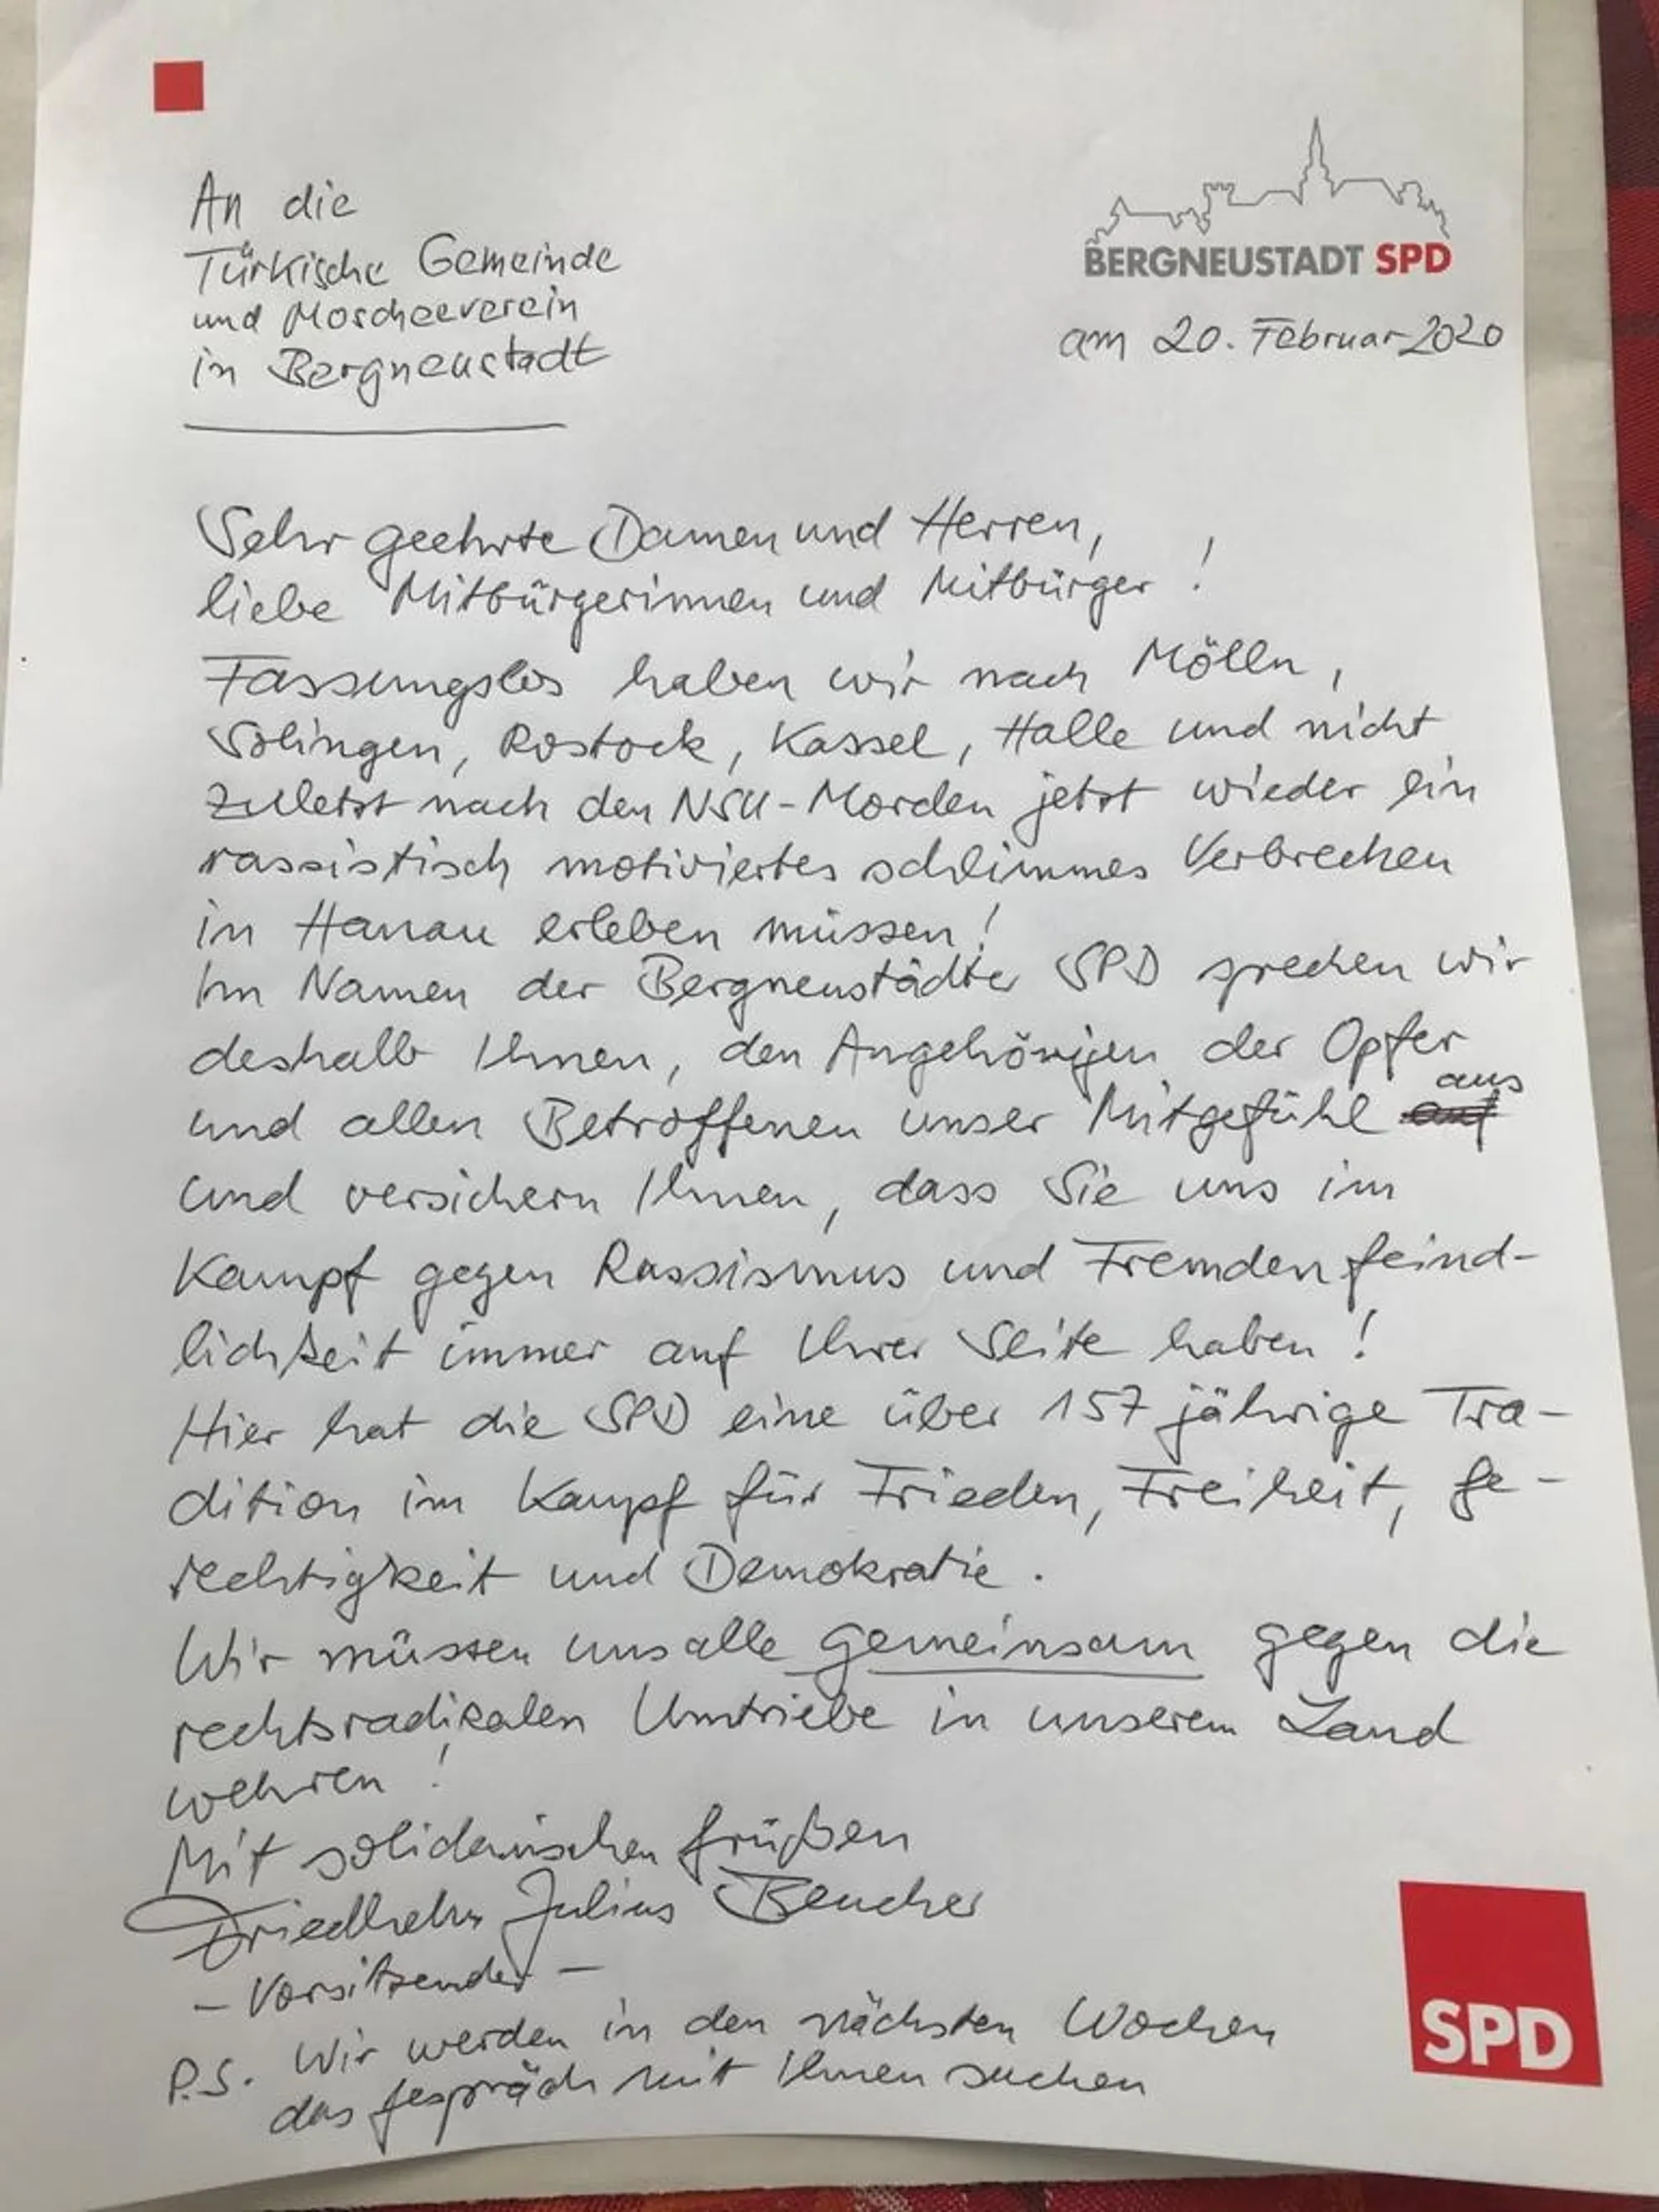 An die
Türkische Gemeinde
und Moscheeverein
in Bergneustadt
BERGNEUSTADT SPD
am 20. Februar 2020
Sehr geehrte Damen und Herren,
liebe Mitbürgerinnen und Mitbürger !
Fassungslos haben wir nach Mölln,
Solingen, Rostock, Kassel, Halle und nicht
zuletzt nach den NSU-Morden jetzt wieder ein
rassistisch motiviertes schlimmes Verbrechen
in Hanau erleben müssen!
Im Namen der Bergneustädter SPD sprechen wir
deshalb Ihnen, den Angehörigen der Opfer
und allen Betroffenen unser Mitgefühl aus
und versichern Ihnen, dass Sie uns im
Kampf gegen Rassismus und Fremdenfeind-
lichkeit immer auf Ihrer Seite haben!
Hier hat die SPD eine über 157 jährige Tra-
dition im Kampf für Frieden, Freiheit, Ge-
rechtigkeit und Demokratie.
Wir müssen uns alle gemeinsam gegen die
rechtsradikalen Umtriebe in unserem Land
wehren!
Mit solidarischen Grüßen
Friedhelm Julius Beucher
- Vorsitzender -
P.S. Wir werden in den nächsten Wochen
das Gespräch mit Ihnen suchen
SPD